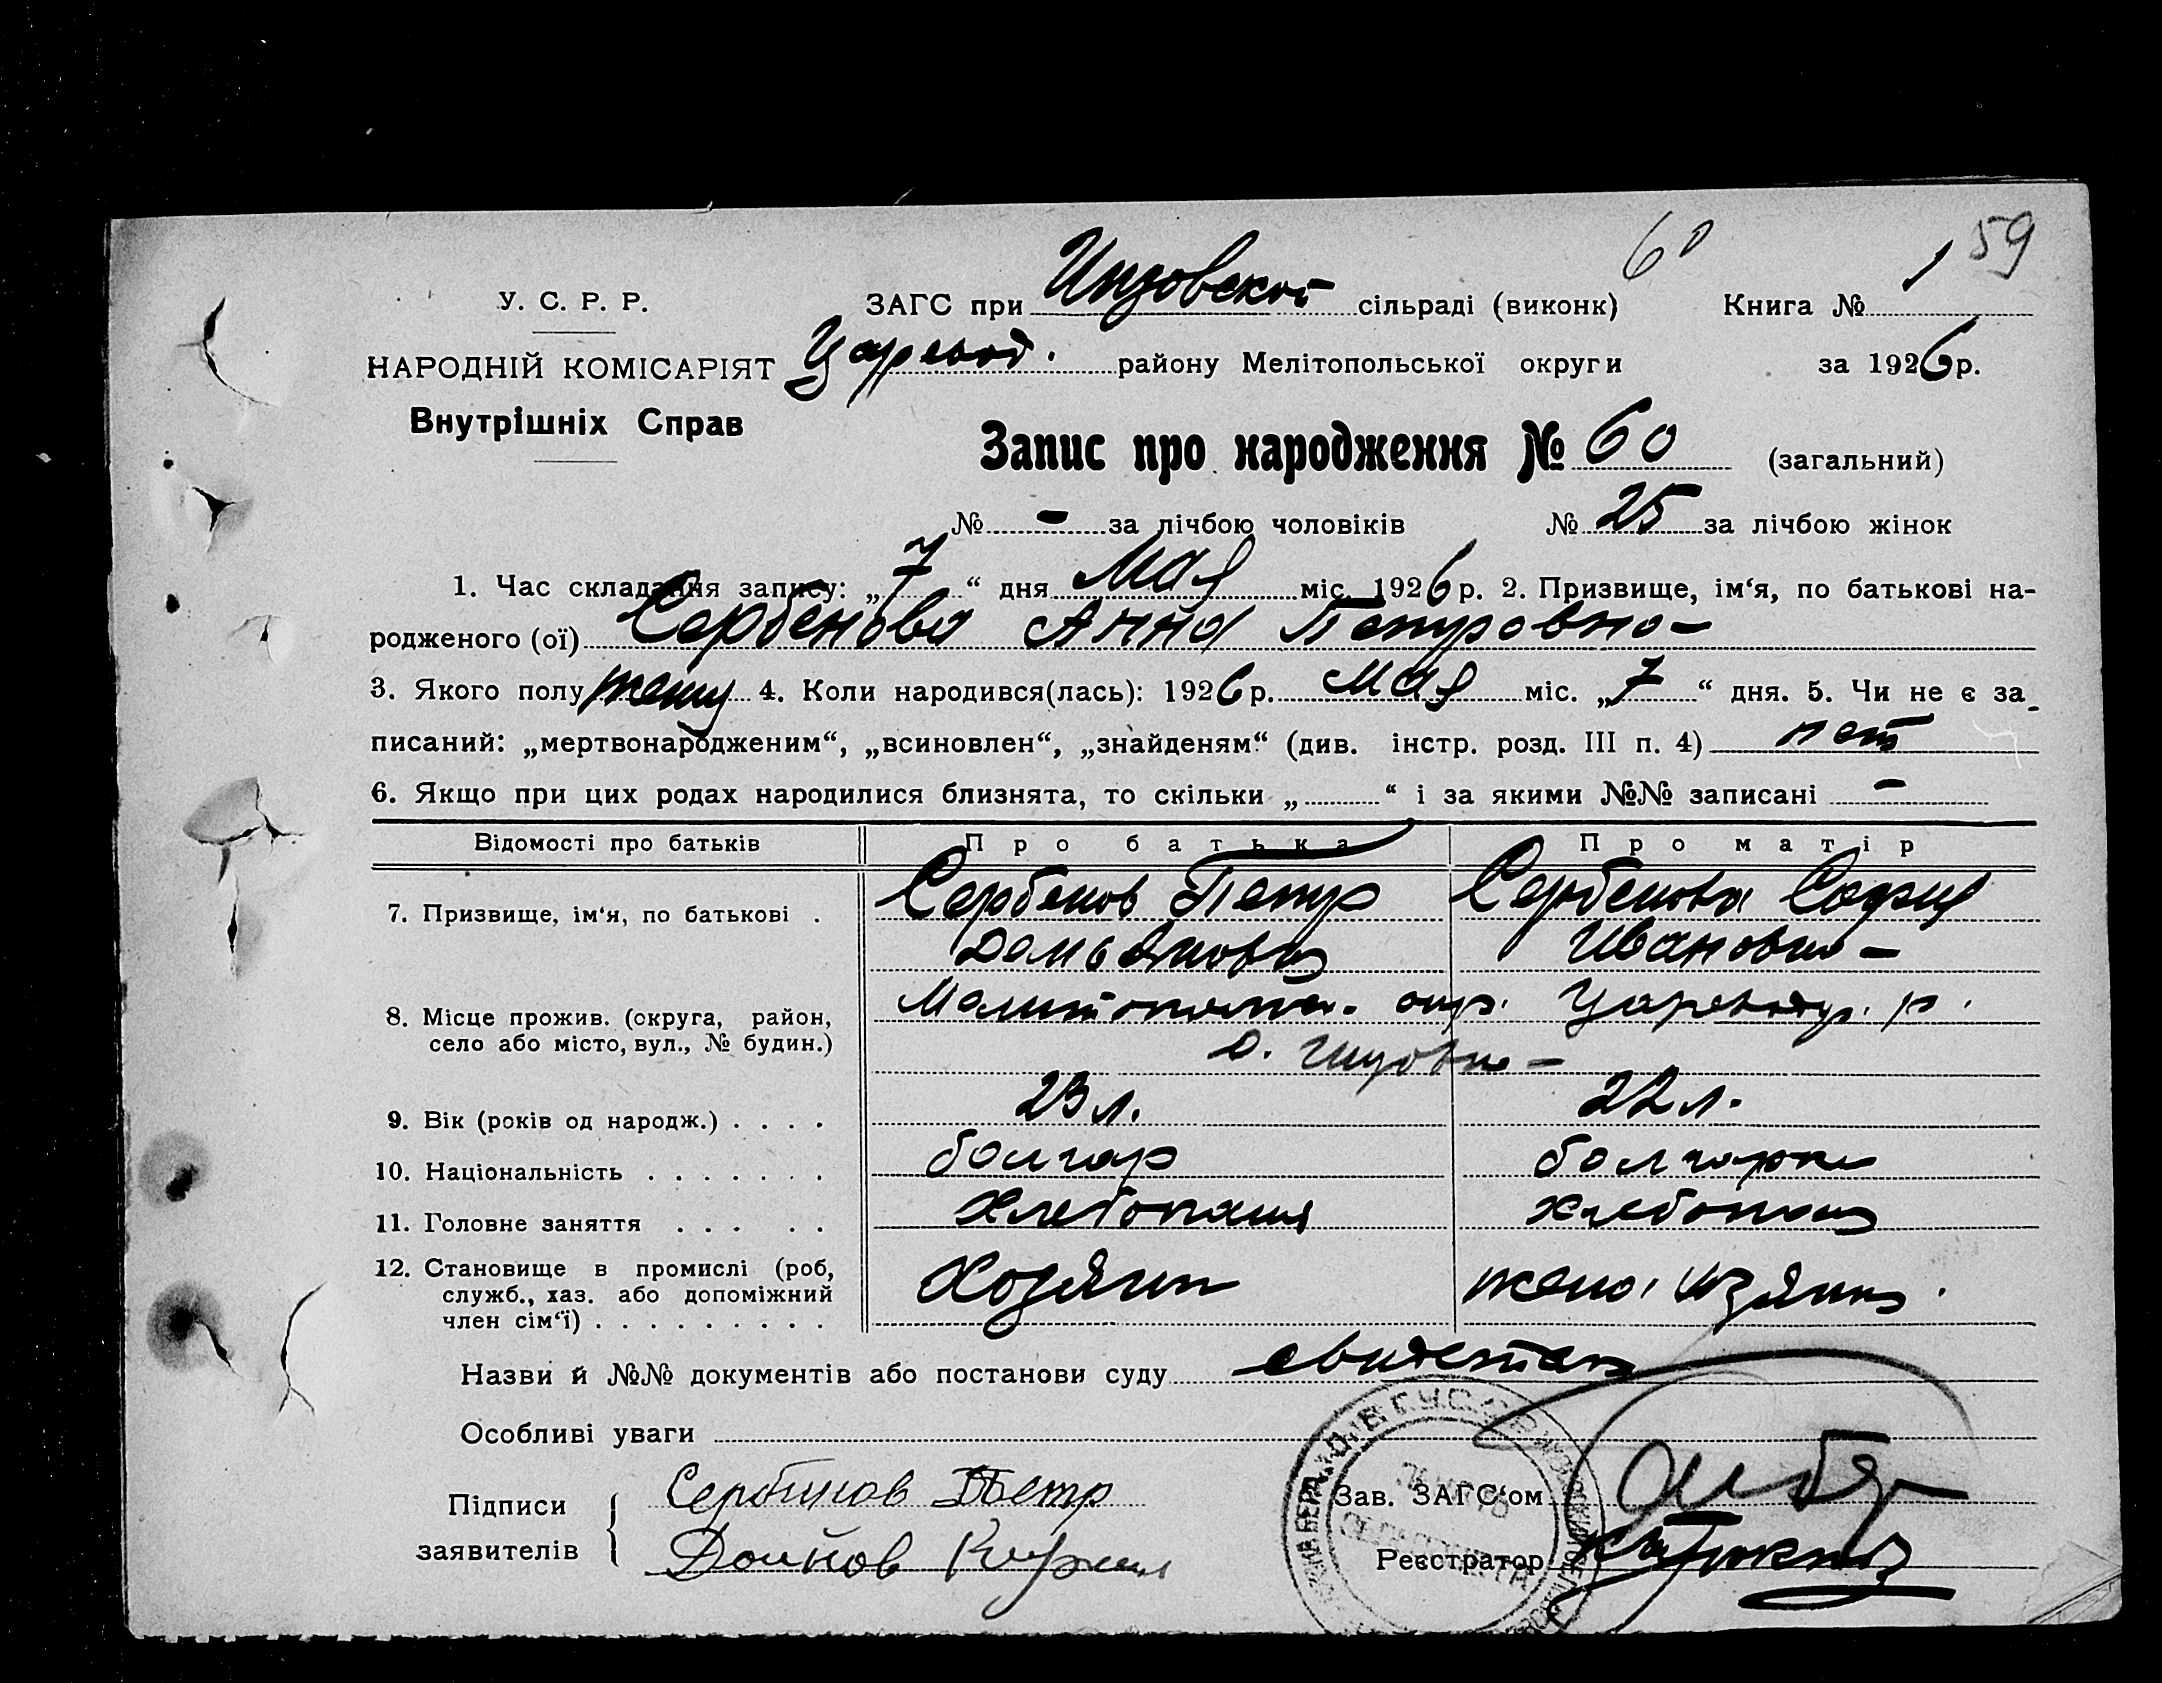 60 59
У. С. Р. Р. ЗАГС при Инзовской сільраді (виконк) Книга № 1
НАРОДНІЙ КОМІСАРІЯТ Царевод. району Мелітопольської округи за 1926 р.
Внутрішніх Справ
Запис про народження № 60 (загальний)
№ - за лічбою чоловіків № 25 за лічбою жінок
1. Час складання запису: „7“ дня Мая міс. 1926 р. 2. Призвище, ім‘я, по батькові на-
родженого (ої) Сербенова Анна Петровна-
3. Якого полу жену 4. Коли народився(лась): 1926 р. Мая міс. „7“ дня. 5. Чи не є за-
писаний: „мертвонародженим“, „всиновлен“, „знайденям“ (див. інстр. розд. III п. 4) нет
6. Якщо при цих родах народилися близнята, то скільки „ “ і за якими №№ записані -
Відомості про батьків Про батька Про матір
7. Призвище, ім‘я, по батькові . Сербенов Петр Сербенова София
Демьянович Ивановна -
8. Місце прожив. (округа, район, Мелитопольск. окр. Царевод. р.
село або місто, вул., № будин.) с. Инзовка -
9. Вік (років од народж.) . . . . 23 л. 22 л.
10. Національність . . . . . . . болгар болгарка
11. Головне заняття . . . . . Хлебопашц хлебопаш
12. Становище в промислі (роб, Хозяин жена хозяина.
служб., хаз. або допоміжний
член сім‘ї) . . . . . . . . .
Назви й №№ документів або постанови суду
Особливі уваги
Підписи Сербинов Петр Зав. ЗАГС‘ом
заявителів Доинов Реєстратор